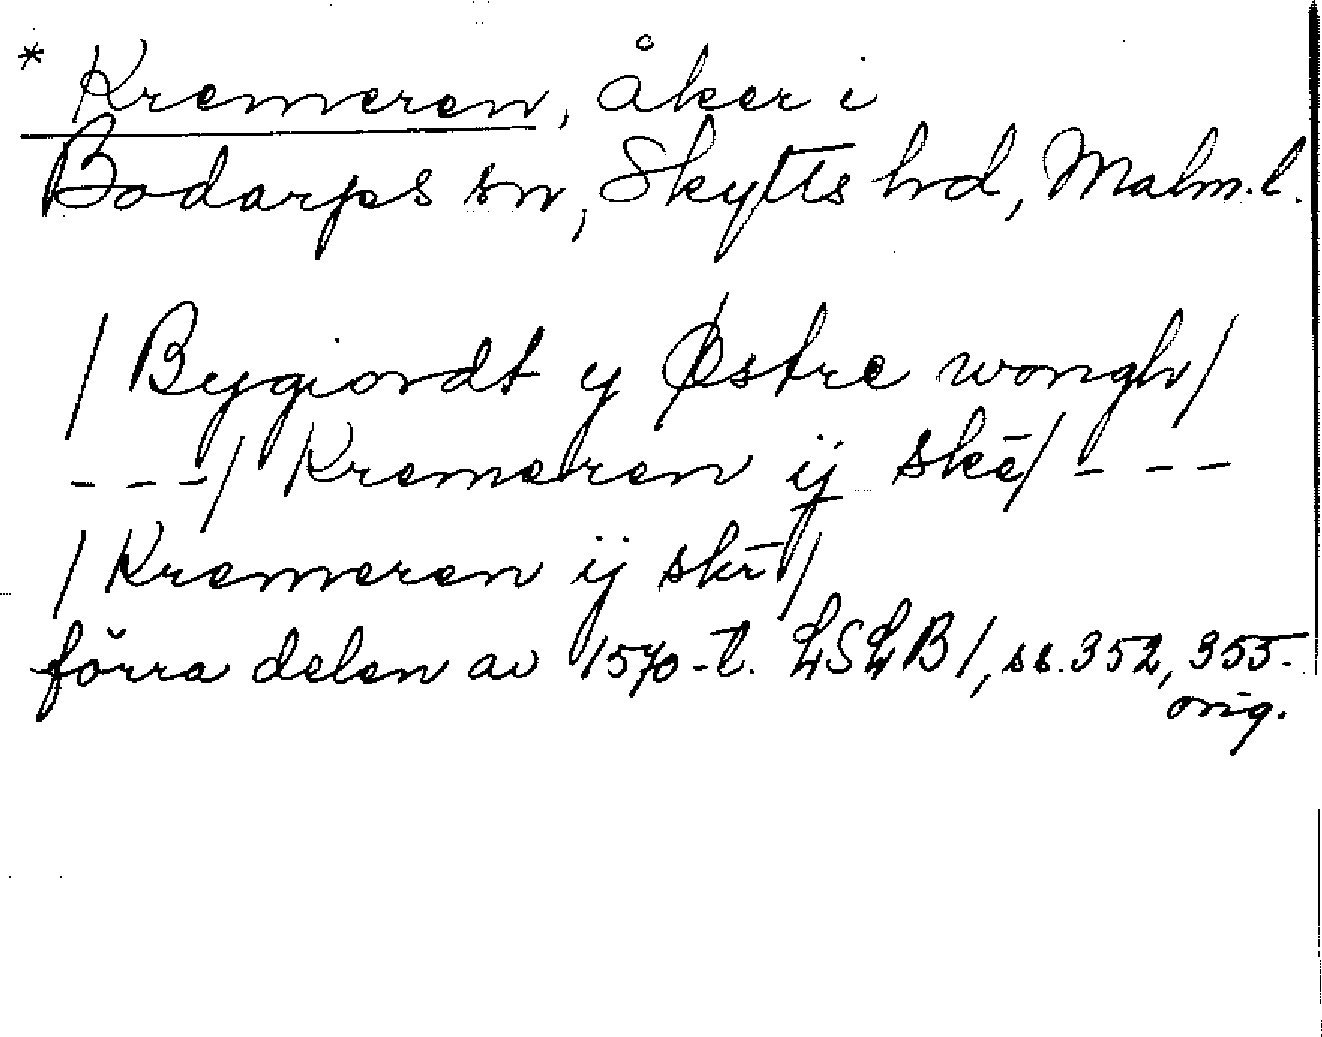 * Kremeren, åker i
Bodarps sn, Skytts hd, Malm.l.
/ Bygiordt y Østre wongh /
- - - / Kremeren ij skē / - - -
/ Kremeren ij skr̄ /
förra delen av 1570-t. LSLB1, ss. 352, 355.
orig.